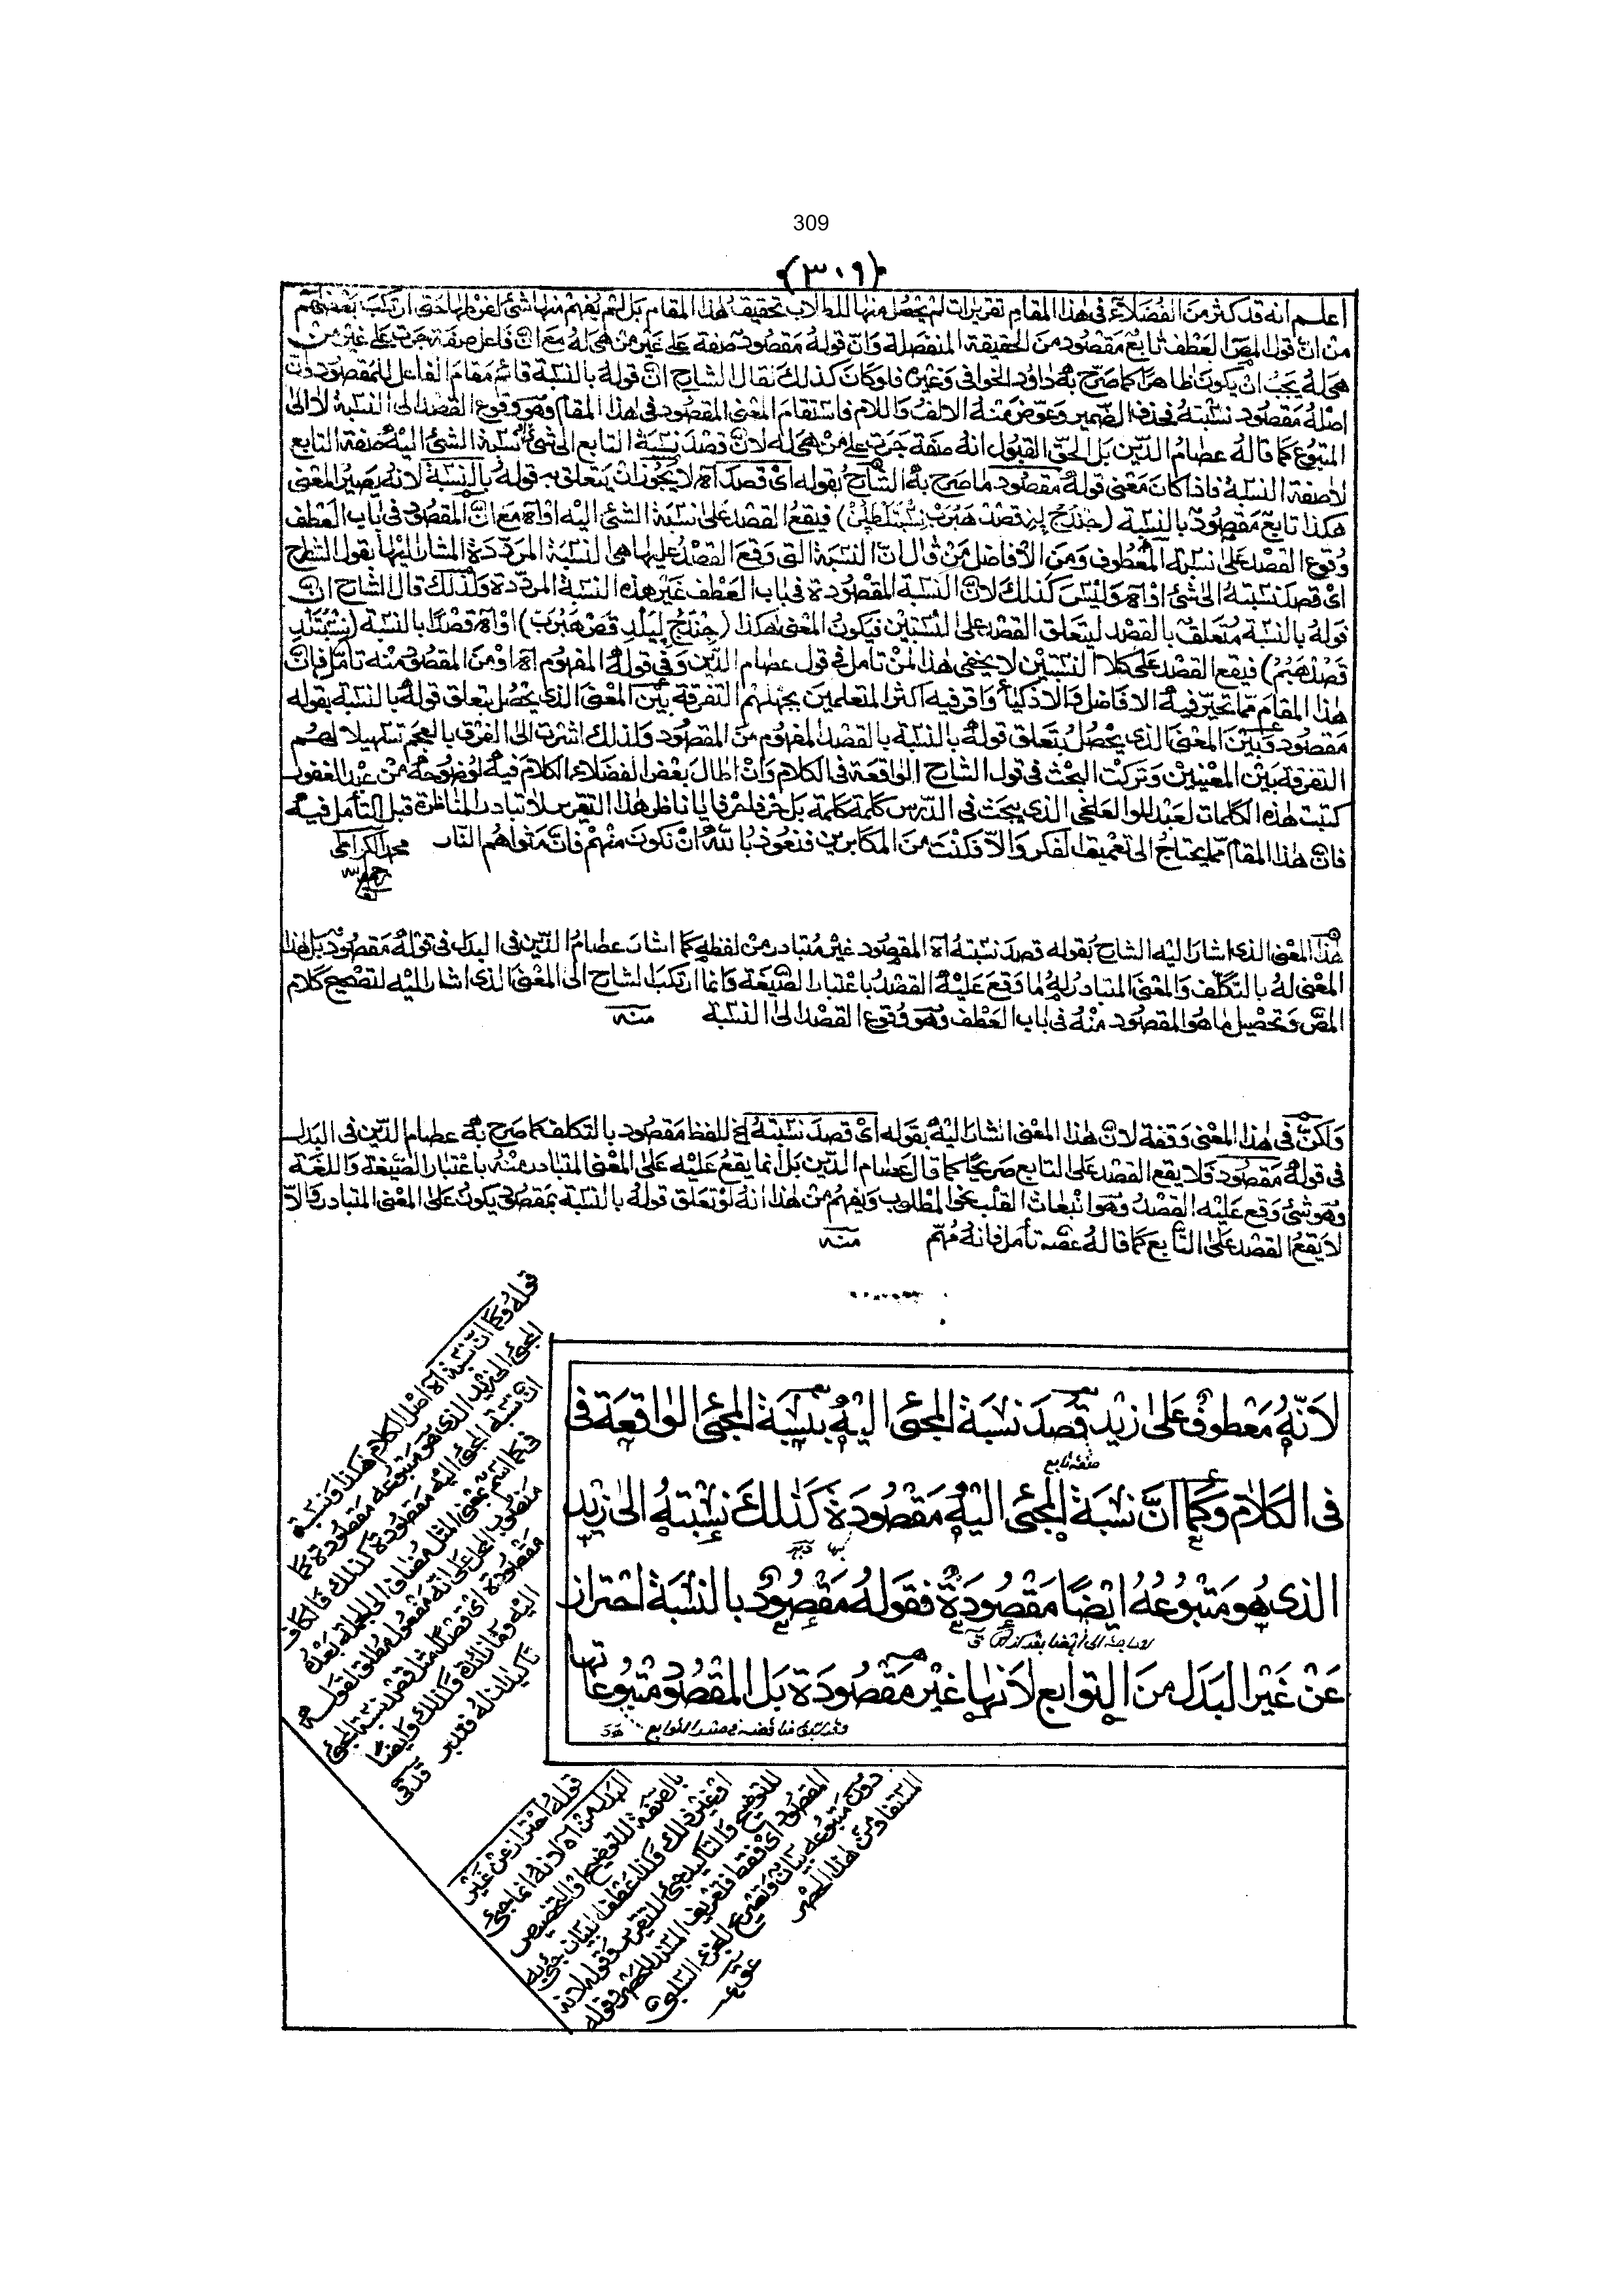 309
﴿٣٠٩﴾
اعلم انه قد كثر من الفضلاء فى هذا المقام تقريرات لم يحصل منها للطلاب تحقيق هذا المقام بل لم يفهم منها شئ لغرض لها حتى ارتكب بعضهم
من ان قول المص العطف تابع مقصود من الحقيقة المنفصلة وان قوله مقصود صفة على غير من هى له مع ان فاعل صفة جرت على غير من
هى له يجب ان يكون ظاهرا كما صرح به داود الخوافى وغيره فلو كان كذلك نقال الشارح ان قوله بالنسبة قائم مقام الفاعل للمقصود وان
اصله مقصود نسبته فحذف الضمير وعوض منه الالف واللام فاستقام المعنى المقصود فى هذا المقام وهو وقوع القصد الى النسبة لا الى
المتبوع كما قاله عصام الدين بل الحق القبول انه صفة جرت على من هى له لان قصد نسبة التابع الى شئ او نسبة الشئ اليه صفة التابع
لا صفة النسبة فاذا كان معنى قوله مقصود ما صرح به الشارح بقوله اى قصد آه لا يجوز ان يتعلق به قوله بالنسبة لانه يصير المعنى
هكذا تابع مقصود بالنسبة فيقع القصد على نسبة الشئ اليه او آه مع ان المقصود فى باب العطف
وقوع القصد على نسبة المعطوف ومن الافاضل من قال ان النسبة التى وقع القصد عليها هى النسبة المرددة المشار اليها بقول الشارح
اى قصد نسبته الى شئ او آه وليس كذلك لان النسبة المقصودة فى باب العطف غير هذه النسبة المرددة ولذلك قال الشارح ان
قوله بالنسبة متعلق بالقصد ليتعلق القصد على النسبتين فيكون المعنى هكذا او آه قصدا بالنسبة
فيقع القصد على كلا النسبتين لا يخفى هذا لمن تأمل فى قول عصام الدين وفى قوله المفهوم آه او من المقصود منه تأمل فان
هذا المقام مما تحير فيه الافاضل والاذكياء واقر فيه اكثر المتعلمين بجهلهم التفرقة بين المعنى الذى يحصل بتعلق قوله بالنسبة بقوله
مقصود وبين المعنى الذى يحصل بتعلق قوله بالنسبة بالقصد المفهوم من المقصود ولذلك اشرت الى الفرق بالعجم تسهيلا لهم
التفرقة بين المعنيين وتركت البحث فى قول الشارح الواقعة فى الكلام وان اطال بعض الفضلاء الكلام فيه لوضوحه من عبد الغفور
كتبت هذه الكلمات لعبد الله العلخى الذى يبحث فى الدرس كلمة كلمة بل حرفا حرفا يا ناظر هذا التقرير لا تبادر المناظرة قبل التأمل فيه
فان هذا المقام مما يحتاج الى تعميق الفكر والا فكنت من المكابرين فنعوذ بالله ان نكون منهم فان مثواهم النار محمد الكرامى
هذا المعنى الذى اشار اليه الشارح بقوله قصد نسبته آه المقصود غير متبادر من لفظه كما اشار عصام الدين فى البدل فى قوله مقصود بل هذا
المعنى له بالتكلف والمعنى المتبادر له ما وقع عليه القصد باعتبار الصيغة وانما ارتكب الشارح الى المعنى الذى اشار اليه لتصحيح كلام
المص وتحصيل ما هو المقصود منه فى باب العطف وهو وقوع القصد الى النسبة منه
ولكن فى هذا المعنى وقفة لان هذا المعنى اشار اليه بقوله اى قصد نسبته الخ للفظ مقصود بالتكلف كما صرح به عصام الدين فى البدل
فى قوله مقصود فلا يقع القصد على التابع صريحا كما قال عصام الدين بل انما يقع عليه على المعنى المتبادر منه باعتبار الصيغة واللغة
وهو شئ وقع عليه القصد وهو انبعاث القلب نحو المطلوب ويفهم من هذا انه لو تعلق قوله بالنسبة بمقصود يكون على المعنى المتبادر والا
لا يقع القصد على التابع كما قاله عصه تأمل فانه مهم منه
قوله وكما ان نسبة آه اصل الكلام هكذا ونسبة
المجئ الى زيد الذى هو متبوعه مقصودة كما
ان نسبة المجئ اليه مقصودة كذلك فالكاف
فى كما اسم بمعنى المثل مضاف الى الجملة بعده
منصوب المحل على انه مفعول مطلق لقوله
مقصودة اى قصدا مثل قصد نسبة المجئ
اليه وما زائدة وكذلك وايضا
تأكيد له فتدبر قدقى
لانه معطوف على زيد قصد نسبة المجئ اليه بنسبة المجئ الواقعة فى
صفة تابع
فى الكلام وكما ان نسبة المجئ اليه مقصودة كذلك نسبته الى زيد
الذى هو متبوعه ايضا مقصودة فقوله مقصود بالنسبة احتراز
عن غير البدل من التوابع لانها غير مقصودة بل المقصود متبوعاتها
قوله احتراز عن غير
البدل من آه لانه انما يجئ
بالصفة للتوضيح او التخصيص
او غير ذلك وكذا عطف البيان جئ به
للتوضيح والتأكيد جئ للتقرير وقوله لانه
المقصود اى فقط فتعريف المسند للحصر وقوله
دون متبوعه بيان وتصريح للجزء السلبى
المستفاد من هذا الحصر